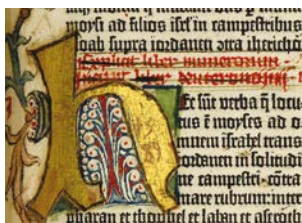 moysi ad filios isrl̄ in campestribus
oab supra iordanen ɔtra iherich
Explicit liber numerorum
incipit liber deuteronomii
Ec sūt verba q̄ locu
tus ē moyses ad o
mnem israhel trans
iordanem in solitudi
ne campestri· cōtra
mare rubrum: int
pharan et thophel et laban et aserot